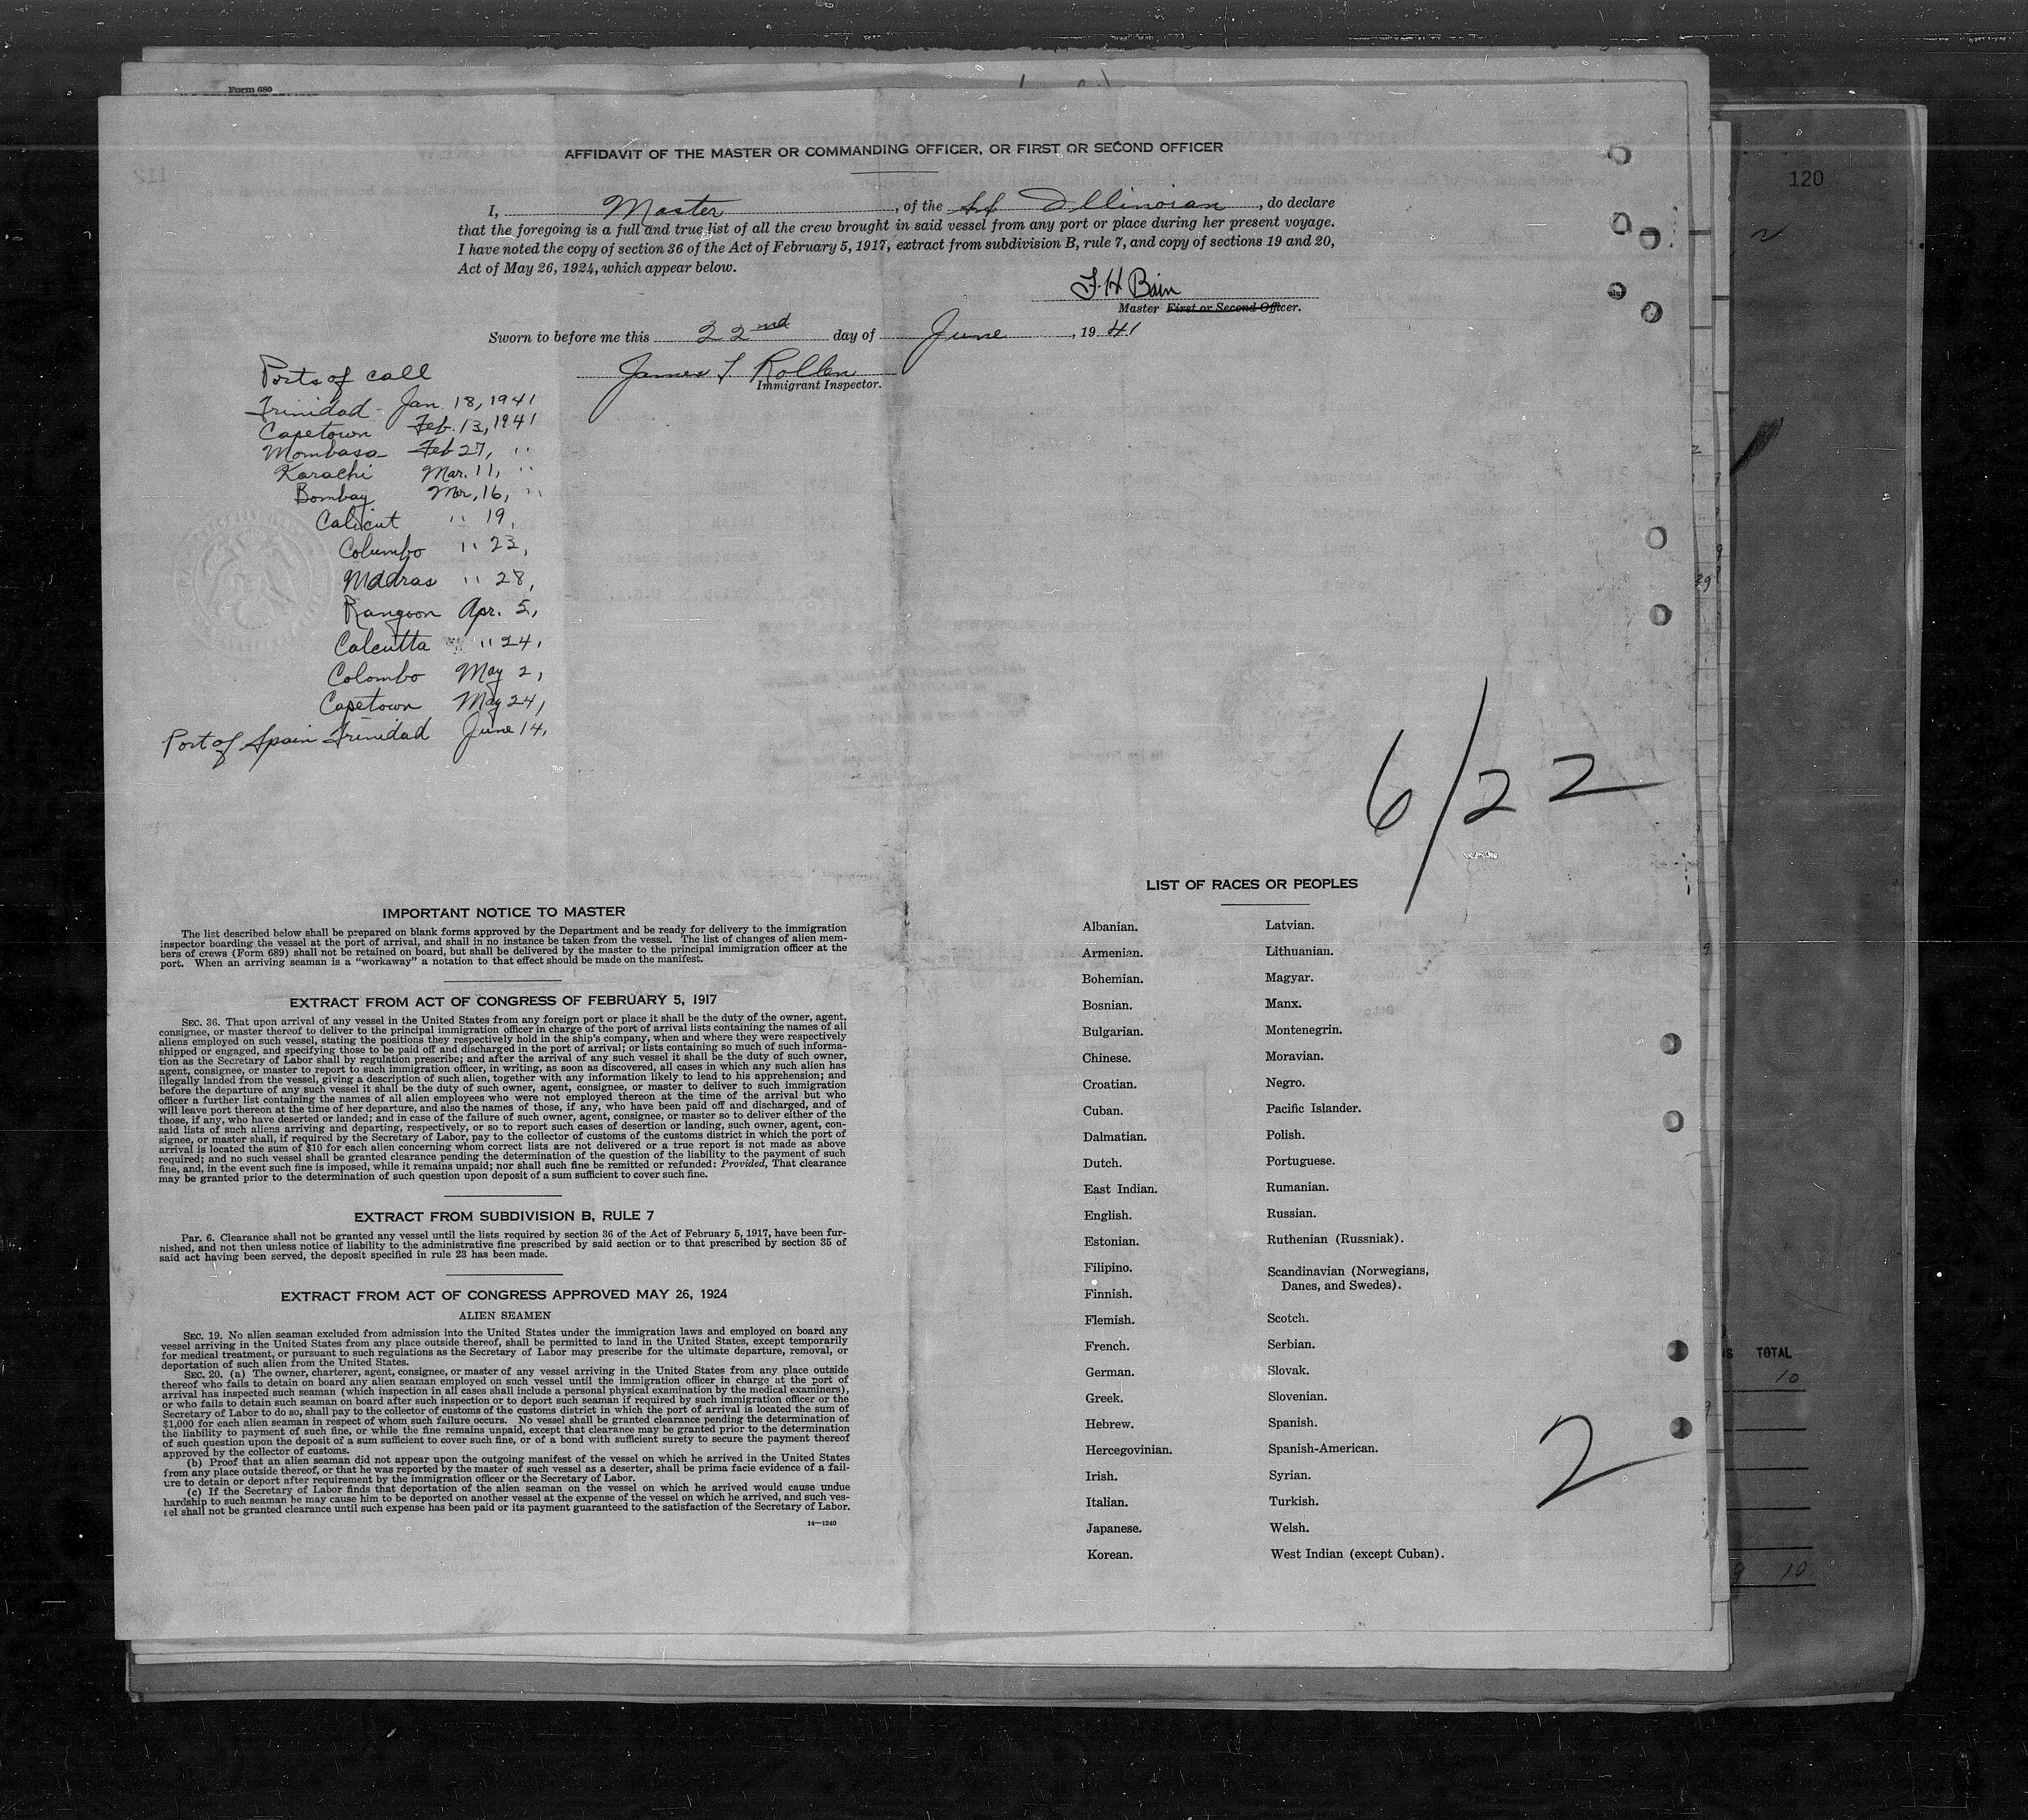 Form 680
120
AFFIDAVIT OF THE MASTER OR COMMANDING OFFICER, OR FIRST OR SECOND OFFICER
I, Master, of the SS Illinoian, do declare
that the foregoing is a full and true list of all the crew brought in said vessel from any port or place during her present voyage.
I have noted the copy of section 36 of the Act of February 5, 1917, extract from subdivision B, rule 7, and copy of sections 19 and 20,
Act of May 26, 1924, which appear below.
F. H Bain
Master First or Second Officer.
Sworn to before me this 22nd day of June, 1941
James T. Rollen
Immigrant Inspector.
Ports of call
Trinidad - Jan 18, 1941
Capetown Feb. 13, 1941
Mombasa Feb 27, "
Karachi Mar. 11, "
Bombay Mar, 16, "
Calicut " 19,
Columbo " 23,
Madras " 28,
Rangoon Apr. 5,
Calcutta " 24,
Colombo May 2,
Capetown May 24,
Port of Spain Trinidad June 14,
6/22
IMPORTANT NOTICE TO MASTER
The list described below shall be prepared on blank forms approved by the Department and be ready for delivery to the immigration
inspector boarding the vessel at the port of arrival, and shall in no instance be taken from the vessel. The list of changes of alien mem-
bers of crews (Form 689) shall not be retained on board, but shall be delivered by the master to the principal immigration officer at the
port. When an arriving seaman is a "workaway" a notation to that effect should be made on the manifest.
EXTRACT FROM ACT OF CONGRESS OF FEBRUARY 5, 1917
SEC. 36. That upon arrival of any vessel in the United States from any foreign port or place it shall be the duty of the owner, agent,
consignee, or master thereof to deliver to the principal immigration officer in charge of the port of arrival lists containing the names of all
aliens employed on such vessel, stating the positions they respectively hold in the ship's company, when and where they were respectively
shipped or engaged, and specifying those to be paid off and discharged in the port of arrival; or lists containing so much of such informa-
tion as the Secretary of Labor shall by regulation prescribe; and after the arrival of any such vessel it shall be the duty of such owner,
agent, consignee, or master to report to such immigration officer, in writing, as soon as discovered, all cases in which any such alien has
illegally landed from the vessel, giving a description of such alien, together with any information likely to lead to his apprehension; and
before the departure of any such vessel it shall be the duty of such owner, agent, consignee, or master to deliver to such immigration
officer a further list containing the names of all alien employees who were not employed thereon at the time of the arrival but who
will leave port thereon at the time of her departure, and also the names of those, if any, who have been paid off and discharged, and of
those, if any, who have deserted or landed; and in case of the failure of such owner, agent, consignee, or master so to deliver either of the
said lists of such aliens arriving and departing, respectively, or so to report such cases of desertion or landing, such owner, agent, con-
signee, or master shall, if required by the Secretary of Labor, pay to the collector of customs of the customs district in which the port of
arrival is located the sum of $10 for each alien concerning whom correct lists are not delivered or a true report is not made as above
required; and no such vessel shall be granted clearance pending the determination of the question of the liability to the payment of such
fine, and, in the event such fine is imposed, while it remains unpaid; nor shall such fine be remitted or refunded: Provided, That clearance
may be granted prior to the determination of such question upon deposit of a sum sufficient to cover such fine.
EXTRACT FROM SUBDIVISION B, RULE 7
Par. 6. Clearance shall not be granted any vessel until the lists required by section 36 of the Act of February 5, 1917, have been fur-
nished, and not then unless notice of liability to the administrative fine prescribed by said section or to that prescribed by section 35 of
said act having been served, the deposit specified in rule 23 has been made.
EXTRACT FROM ACT OF CONGRESS APPROVED MAY 26, 1924
ALIEN SEAMEN
SEC. 19. No alien seaman excluded from admission into the United States under the immigration laws and employed on board any
vessel arriving in the United States from any place outside thereof, shall be permitted to land in the United States, except temporarily
for medical treatment, or pursuant to such regulations as the Secretary of Labor may prescribe for the ultimate departure, removal, or
deportation of such alien from the United States.
SEC. 20. (a) The owner, charterer, agent, consignee, or master of any vessel arriving in the United States from any place outside
thereof who fails to detain on board any alien seaman employed on such vessel until the immigration officer in charge at the port of
arrival has inspected such seaman (which inspection in all cases shall include a personal physical examination by the medical examiners),
or who fails to detain such seaman on board after such inspection or to deport such seaman if required by such immigration officer or the
Secretary of Labor to do so, shall pay to the collector of customs of the customs district in which the port of arrival is located the sum of
$1,000 for each alien seaman in respect of whom such failure occurs. No vessel shall be granted clearance pending the determination of
the liability to payment of such fine, or while the fine remains unpaid, except that clearance may be granted prior to the determination
of such question upon the deposit of a sum sufficient to cover such fine, or of a bond with sufficient surety to secure the payment thereof
approved by the collector of customs.
(b) Proof that an alien seaman did not appear upon the outgoing manifest of the vessel on which he arrived in the United States
from any place outside thereof, or that he was reported by the master of such vessel as a deserter, shall be prima facie evidence of a fail-
ure to detain or deport after requirement by the immigration officer or the Secretary of Labor.
(c) If the Secretary of Labor finds that deportation of the alien seaman on the vessel on which he arrived would cause undue
hardship to such seaman he may cause him to be deported on another vessel at the expense of the vessel on which he arrived, and such ves-
sel shall not be granted clearance until such expense has been paid or its payment guaranteed to the satisfaction of the Secretary of Labor.
14—1240
LIST OF RACES OR PEOPLES
Albanian.
Armenian.
Bohemian.
Bosnian.
Bulgarian.
Chinese.
Croatian.
Cuban.
Dalmatian.
Dutch.
East Indian.
English.
Estonian.
Filipino.
Finnish.
Flemish.
French.
German.
Greek.
Hebrew.
Hercegovinian.
Irish.
Italian.
Japanese.
Korean.
Latvian.
Lithuanian.
Magyar.
Manx.
Montenegrin.
Moravian.
Negro.
Pacific Islander.
Polish.
Portuguese.
Rumanian.
Russian.
Ruthenian (Russniak).
Scandinavian (Norwegians,
Danes, and Swedes).
Scotch.
Serbian.
Slovak.
Slovenian.
Spanish.
Spanish-American.
Syrian.
Turkish.
Welsh.
West Indian (except Cuban).
2
TOTAL
10
10